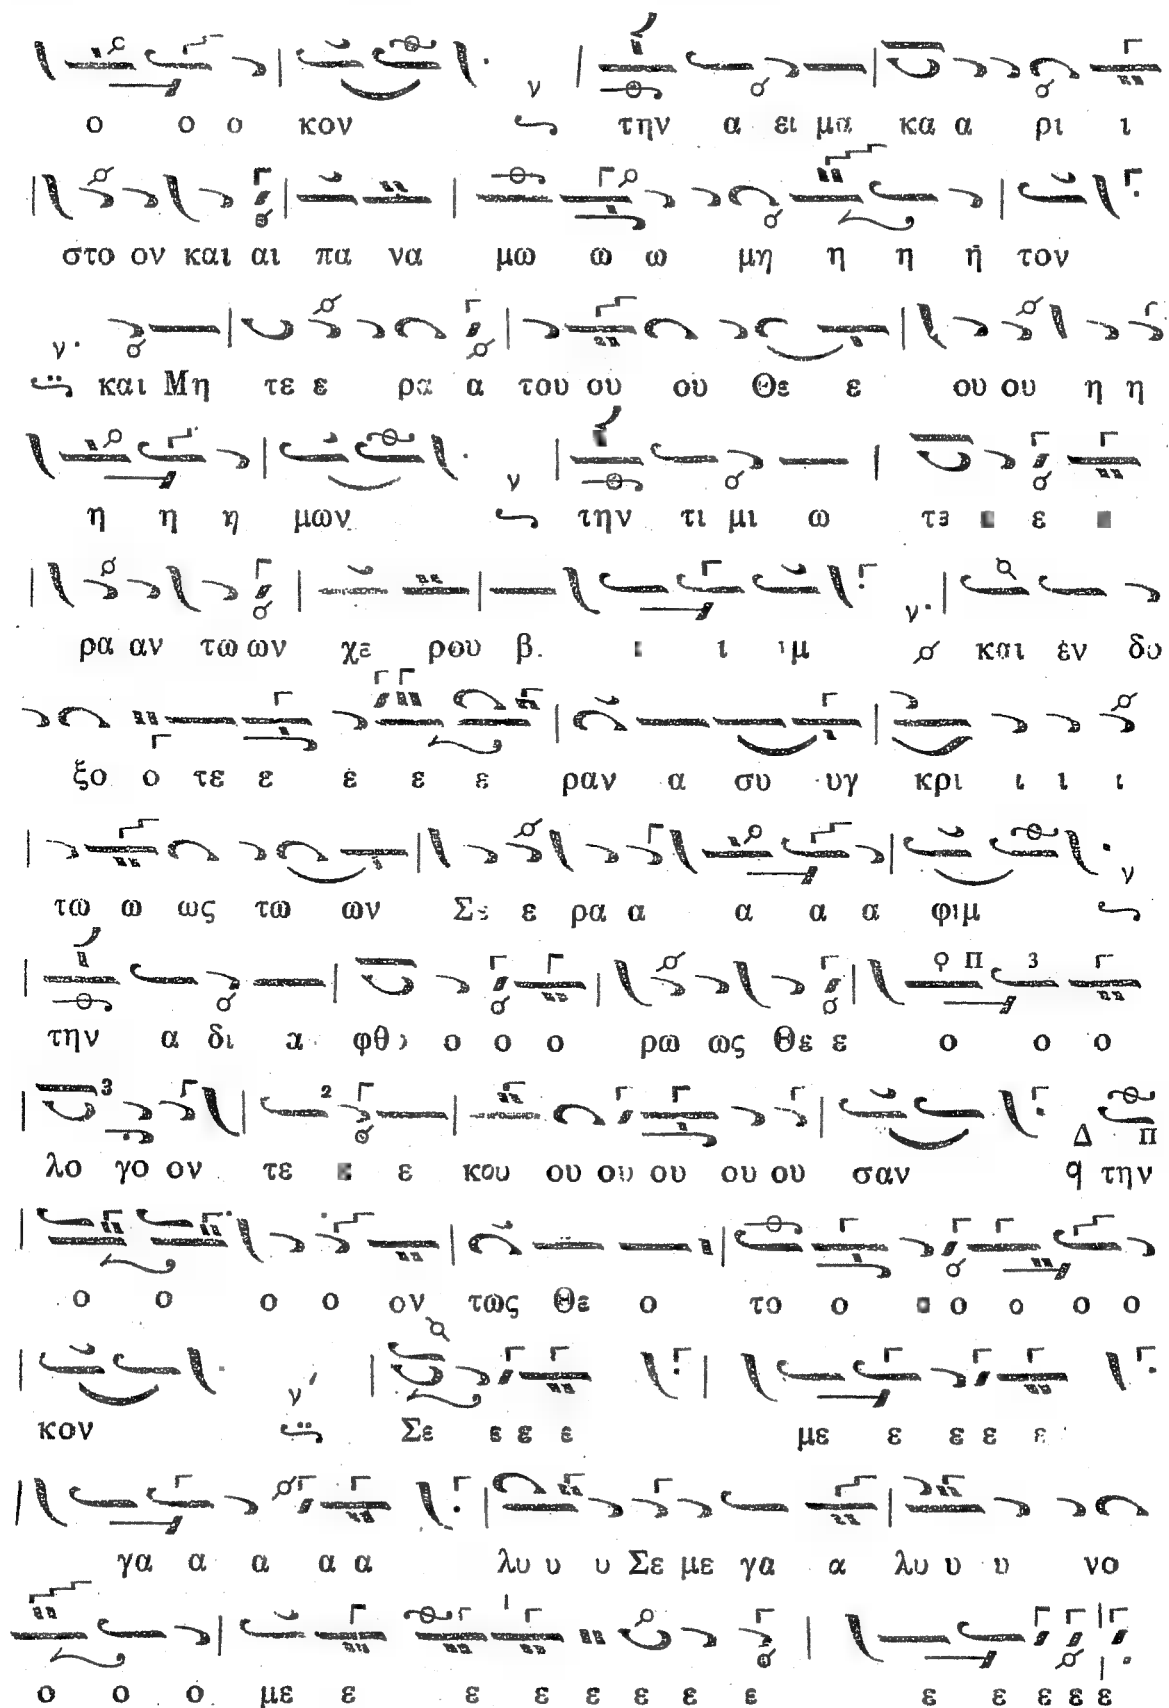 ο ο ο κον την α ει μα κα α ρι ι
στο ον και αι πα να μω ω ω μη η η η τον
και Μη τε ε ρα α του ου ου Θε ε ου ου η η
η η η μων την τι μι ω τε ε
ρα αν τω ων χε ρου β. ι ι ιμ και ἐν δο
ξο ο τε ε ε ε ε ραν α συ υγ κρι ι ι ι
τω ω ως τω ων Σε ε ρα α α α α φιμ
την α δι α φθο ο ο ο ρω ως Θε ε ο ο ο
λο γο ον τε ε κου ου ου ου ου ου σαν την
ο ο ο ο ον τως Θε ο το ο ο ο ο ο
κον Σε ε ε ε με ε ε ε ε
γα α α α α λυ υ υ Σε με γα α λυ υ υ νο
ο ο ο με ε ε ε ε ε ε ε ε ε ε ε